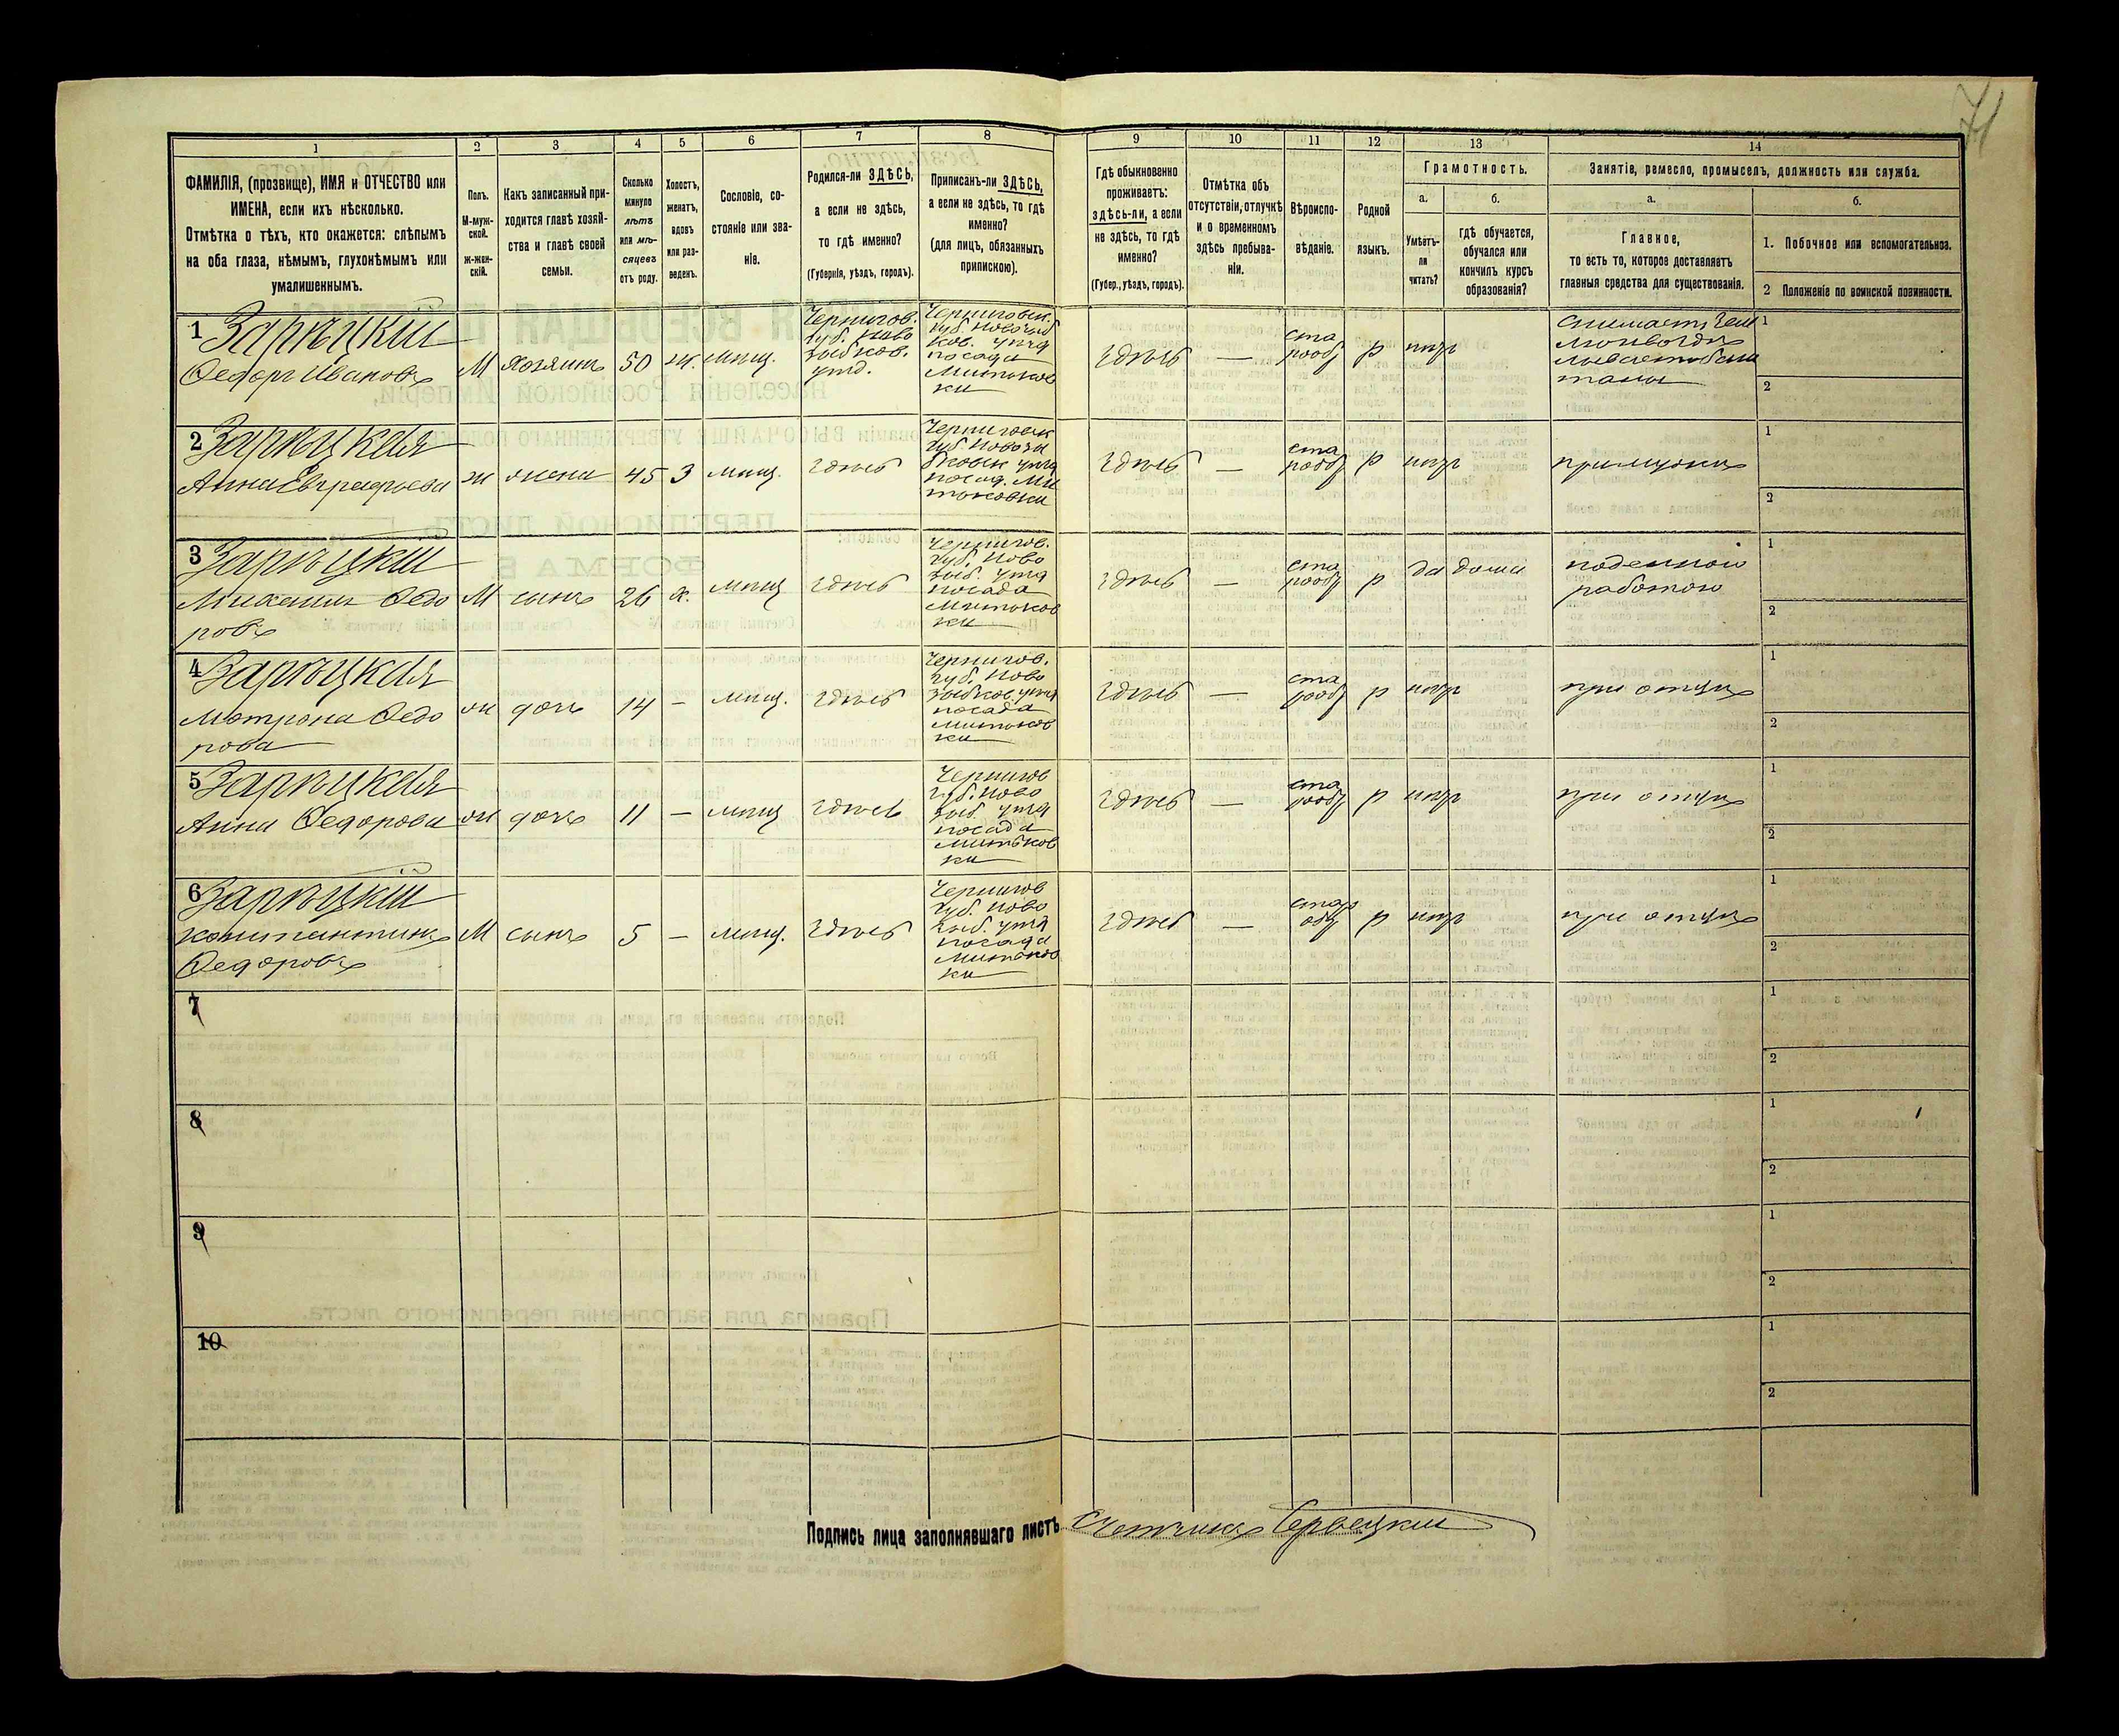 71
1 2 3 4 5 6 7 8 9 10 11 12 13 14
ФАМИЛІЯ, (прозвище), ИМЯ и ОТЧЕСТВО или
ИМЕНА, если ихъ нѣсколько.
Отмѣтка о тѣхъ, кто окажется: слѣпымъ
на оба глаза, нѣмымъ, глухонѣмымъ или
умалишеннымъ.
Полъ.
М-муж-
ской.
ж-жен-
скій.
Какъ записанный при-
ходится главѣ хозяй-
ства и главѣ своей
семьи.
Сколько
минуло
лѣтъ
или мѣ-
сяцевъ
отъ роду.
Холостъ,
женатъ,
вдовъ
или раз-
веденъ.
Сословіе, со-
стояніе или зва-
ніе.
Родился-ли ЗДѢСЬ,
а если не здѣсь,
то гдѣ именно?
(Губернія, уѣздъ, городъ).
Приписанъ-ли ЗДѢСЬ,
а если не здѣсь, то гдѣ
именно?
(для лицъ, обязанныхъ
припискою).
Гдѣ обыкновенно
проживаетъ:
здѣсь-ли, а если
не здѣсь, то гдѣ
именно?
(Губер., уѣздъ, городъ).
Отмѣтка объ
отсутствіи, отлучкѣ
и о временномъ
здѣсь пребыва-
ніи.
Вѣроиспо-
вѣданіе.
Родной
языкъ.
Грамотность.
а.
Умѣетъ-
ли
читать?
б.
гдѣ обучается,
обучался или
кончилъ курсъ
образованія?
Занятіе, ремесло, промыселъ, должность или служба.
а.
Главное,
то есть то, которое доставляетъ
главныя средства для существованія.
б.
1. Побочное или вспомогательное.
2 Положеніе по воинской повинности.
1 Зарѣцкій
Федоръ Ивановъ
М
хозяинъ
50
ж.
мѣщ.
Чернигов.
губ. Ново
зыбков.
уѣзд.
Черниговск.
губ. Новозыб
ков. уѣзд
посада
Митьков
ки
здѣсь
—
ста
рооб
р
нѣт
1
2
2 Зарѣцкая
Анна Евграфова
ж
жена
45
З
мѣщ.
здѣсь
Черниговск
губ. Новозы
бковск уѣзд
посад. Ми
тьковки
здѣсь
—
ста
рооб
р
нѣт
при мужѣ
1
2
3 Зарѣцкій
Михаилъ Федо
ровъ
М
сынъ
26
х.
мѣщ
здѣсь
Чернигов.
губ. Ново
зыб. уѣзд
посада
Митьков
ки
здѣсь
—
ста
рооб
р
да
дома
поденной
работою
1
2
4 Зарѣцкая
Матрона Федо
рова
ж
дочь
14
—
мѣщ.
здѣсь
Чернигов.
губ. Ново
зыбков уѣзд
посада
Митьков
ки
здѣсь
—
ста
рооб
р
нѣт
при отцѣ
1
2
5 Зарѣцкая
Анна Федорова
ж
дочь
11
—
мѣщ
здѣсь
Чернигов
губ. Ново
зыб. уѣзд
посада
Митьков
ки
здѣсь
—
ста
рооб
р
нѣт
при отцѣ
1
2
6 Зарѣцкій
Константинъ
Федоровъ
М
сынъ
5
—
мѣщ.
здѣсь
Чернигов
губ. Ново
зыб. уѣзд
посада
Митьков
ки
здѣсь
—
стар
об
р
нѣт
при отцѣ
1
2
7
1
2
8
1
2
9
1
2
10
1
2
Подпись лица заполнявшаго листъ Счетчикъ